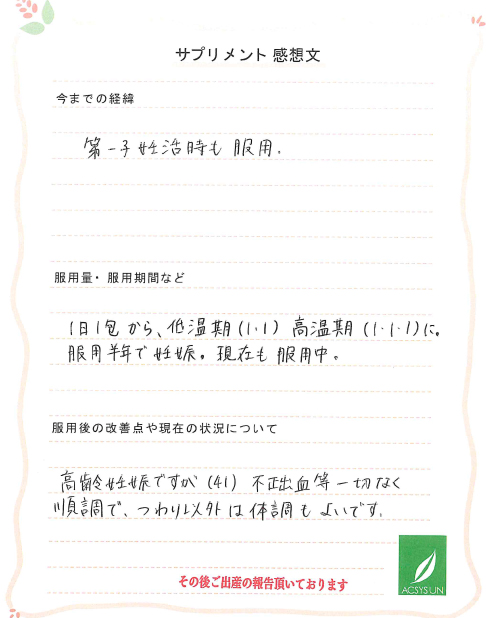 サプリメント 感想文
今までの経緯
第一子妊活時も服用.
服用量・服用期間など
1日1包から、低温期(1・1) 高温期(1・1・1)に。
服用半年で妊娠。現在も服用中。
服用後の改善点や現在の状況について
高齢妊娠ですが(41)不正出血等一切なく
順調で、つわり以外は体調もよいです。
その後ご出産の報告頂いております
ACSYSUN